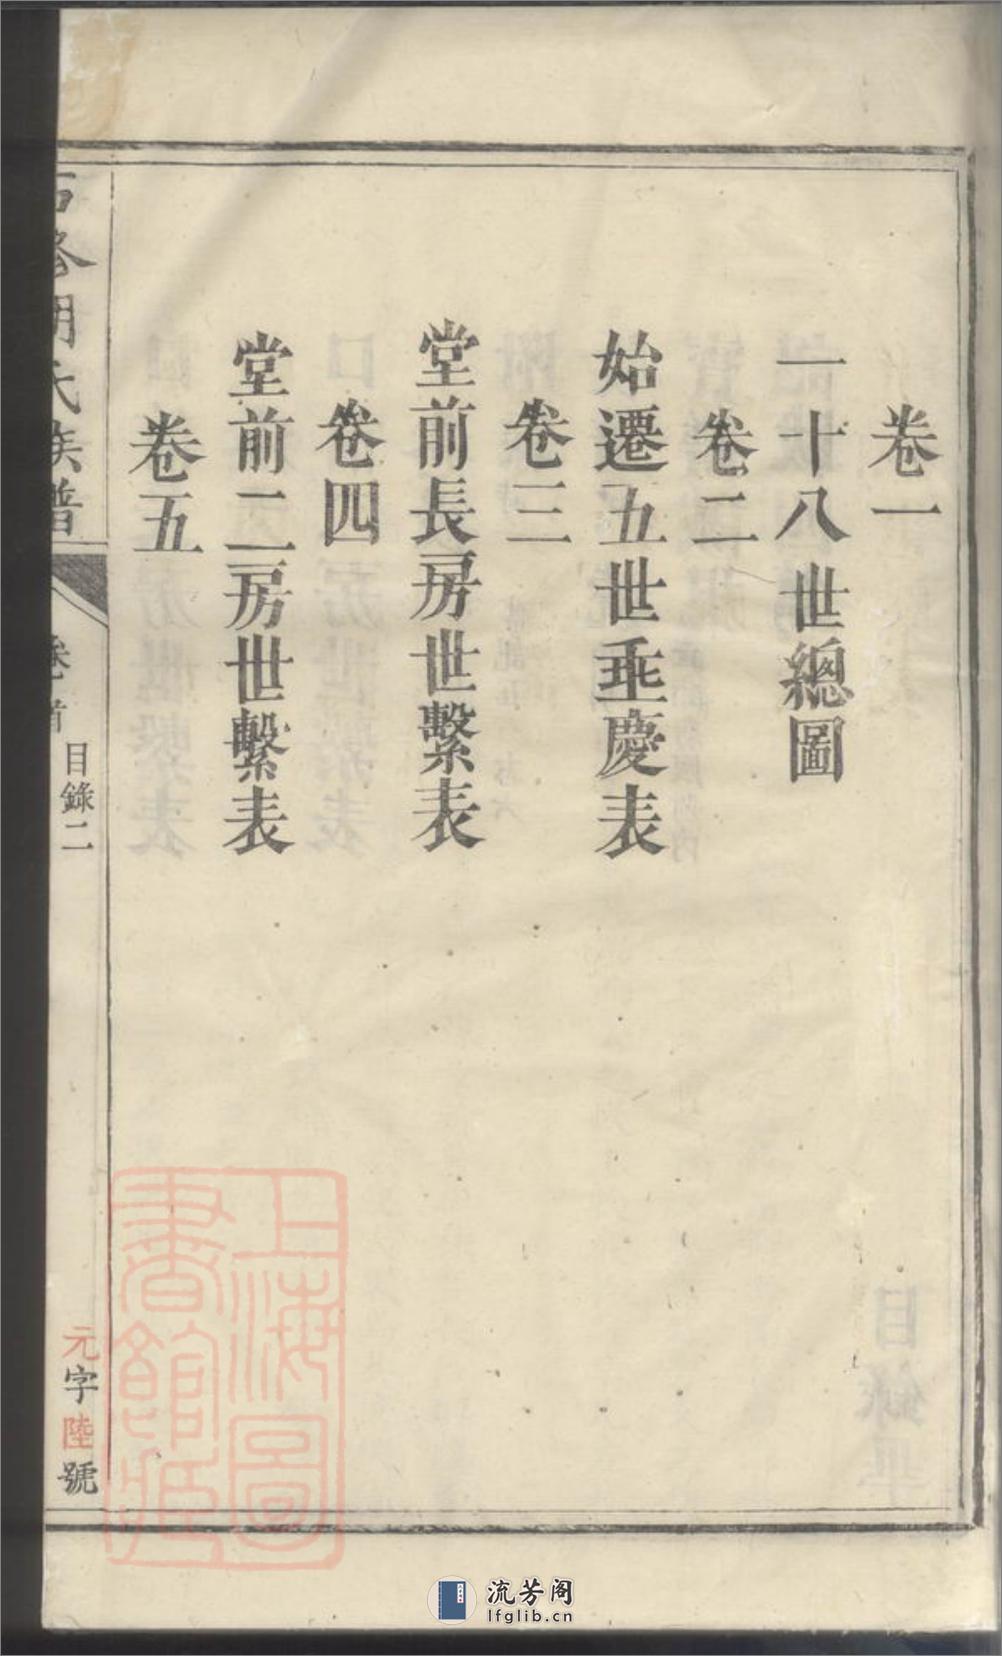 卷一
一十八世總圖
卷二
始遷五世垂慶表
卷三
堂前長房世繫表
卷四
堂前二房世繫表
卷五
胡氏族譜
卷首
目錄二
元字陸號
上海圖
書館藏
流芳阁
lfglib.cn